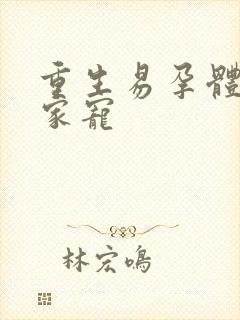 重生易孕體
家寵
林宏鳴